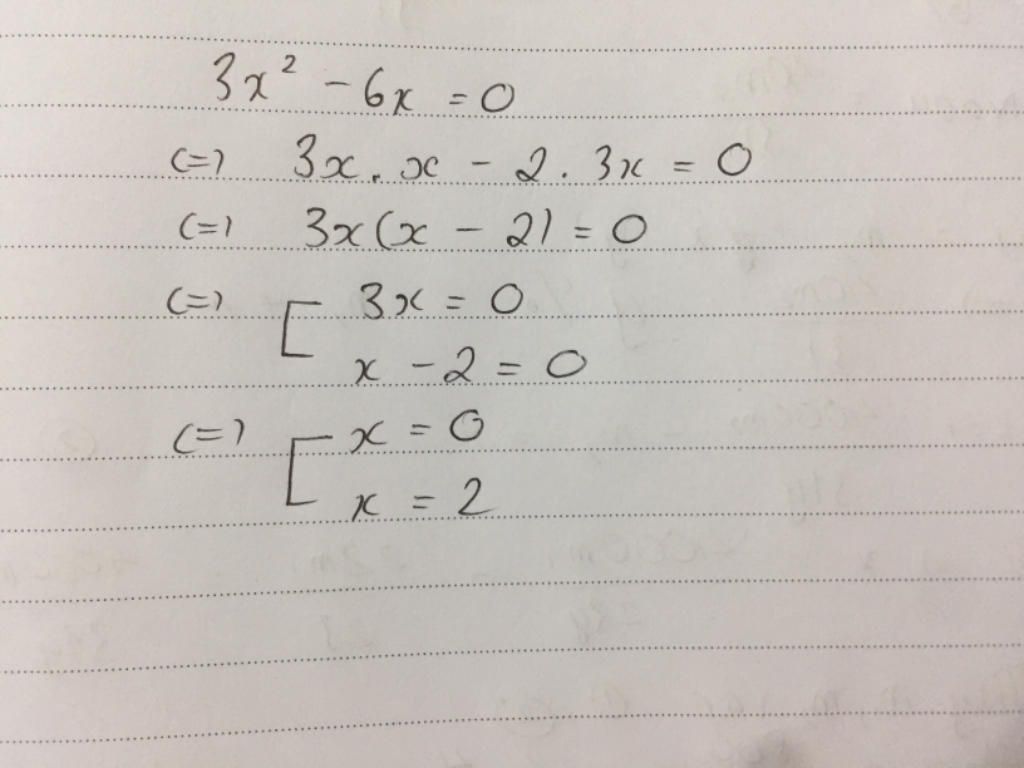 3x² - 6x = 0
(=) 3x . x - 2 . 3x = 0
(=) 3x(x - 2) = 0
(=) [ 3x = 0
x - 2 = 0
(=) [ x = 0
x = 2